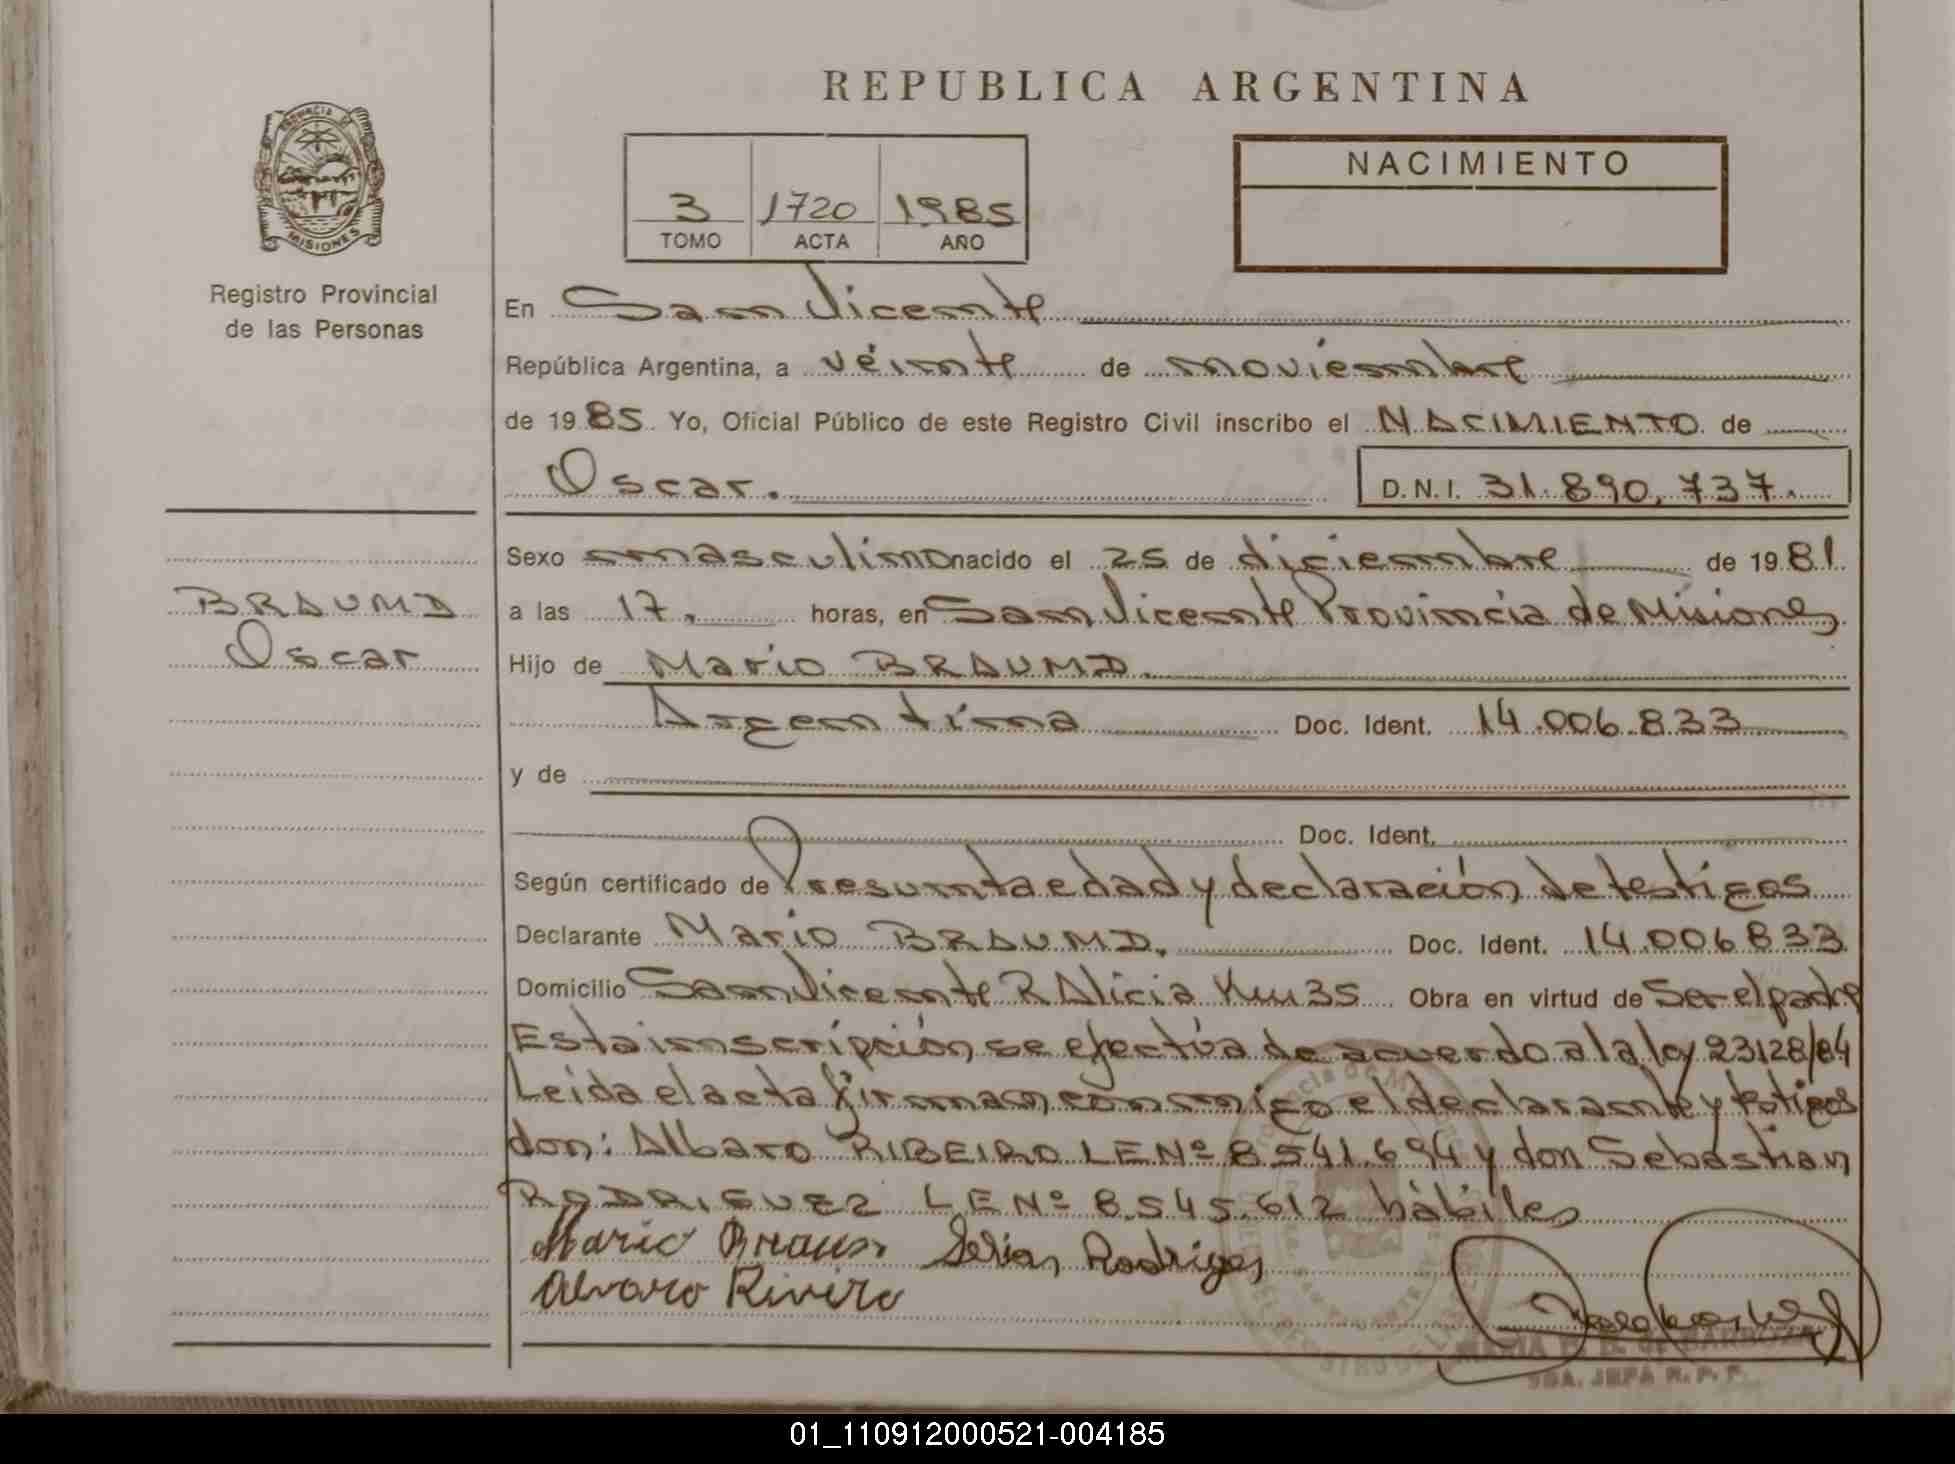 REPUBLICA ARGENTINA
NACIMIENTO
3 1720 1985
TOMO ACTA AÑO
PROVINCIA DE
MISIONES
Registro Provincial
de las Personas
En San Vicente
República Argentina, a veinte de noviembre
de 1985. Yo, Oficial Público de este Registro Civil inscribo el NACIMIENTO de
Oscar. D.N.I. 31.890,737.
Sexo masculino nacido el 25 de diciembre de 1981
BRAUND
Oscar
a las 17. horas, en San Vicente Provincia de Misiones
Hijo de Mario BRAUND.
Argentina Doc. Ident. 14.006.833
y de
Doc. Ident.
Según certificado de Presunta edad y declaración de testigos
Declarante Mario BRAUND. Doc. Ident. 14.006833
Domicilio San Vicente R Alicia Km 35 Obra en virtud de Ser el padre
Esta inscripción se efectúa de acuerdo a la ley 23128/84
Leida el acta firman conmigo el declarante y testigos
don: Albaro RIBEIRO LE Nº 8541.694 y don Sebastian
RODRIGUEZ LE Nº 8.545.612 hábiles
Mario Rodriges
Alvaro Riviro
JEFA R. P. P.
01_110912000521-004185